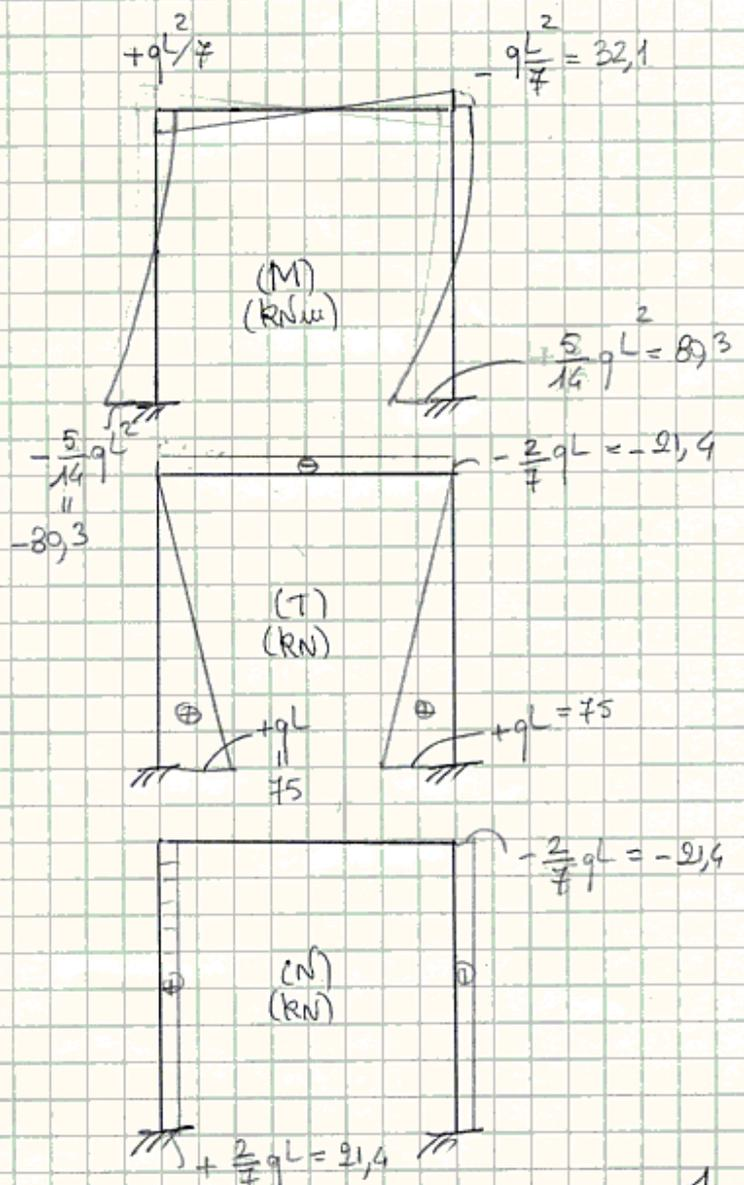 +qL²/7
- qL²/7 = 32,1
(M)
(kNm)
5/14 qL² = 80,3
- 5/14 qL²
=
-80,3
⊖
- 2/7 qL = -21,4
(T)
(kN)
⊕
⊕
+qL
=
75
+qL = 75
- 2/7 qL = -21,4
(N)
(kN)
⊕
⊖
+ 2/7 qL = 21,4